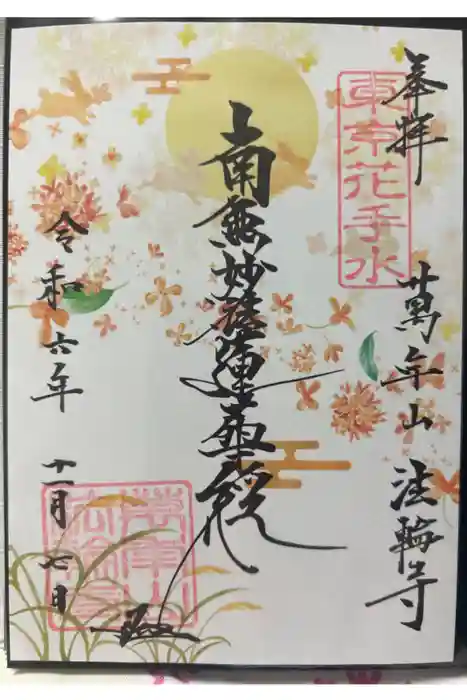 奉拝
東京花手水
萬年山 法輪寺
南無妙法蓮華経
令和六年 十一月 七日